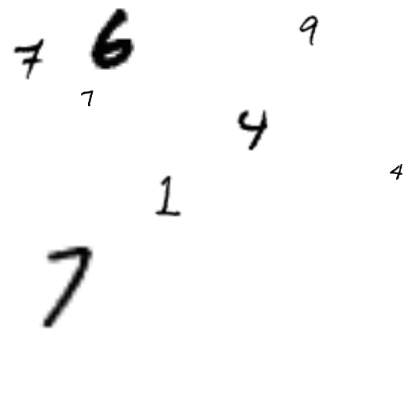 7 6 9
7
4
4
1
7